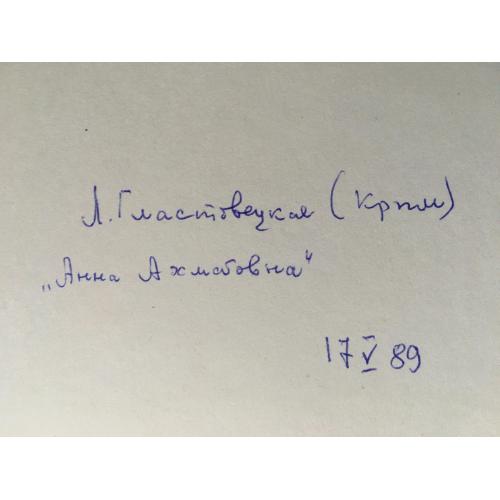 Л. Гластовецкая (Крым)
„Анна Ахматовна"
17 V 89